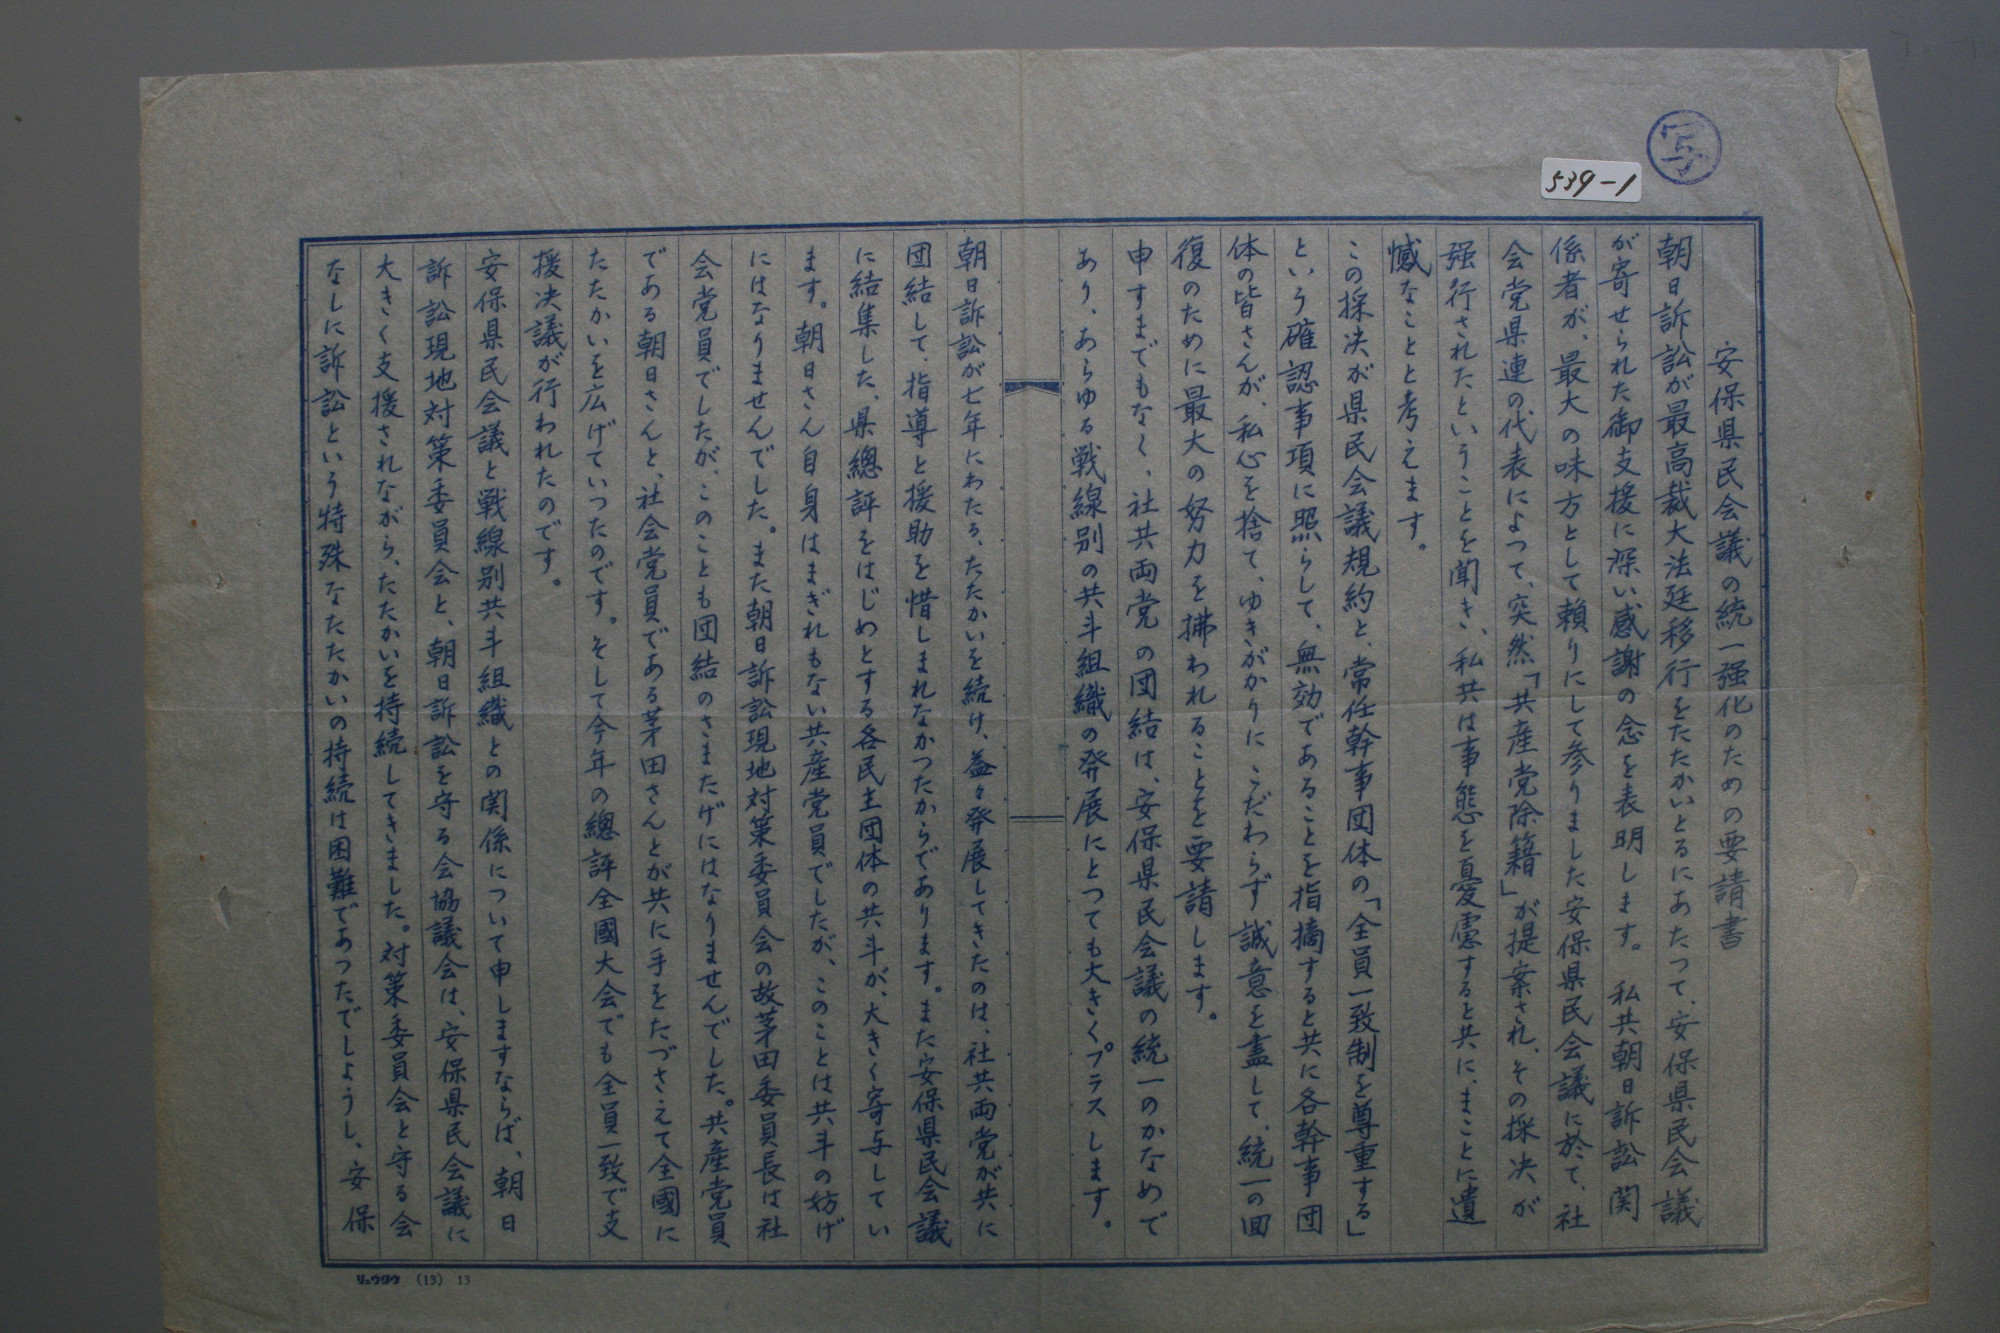 写
539-1
安保県民会議の統一强化のための要請書
朝日訴訟が最高裁大法廷移行をたたかいとるにあたつて、安保県民会議
が寄せられた御支援に深い感謝の念を表明します。私共朝日訴訟関
係者が、最大の味方として頼りにして参りました安保県民会議に於て、社
会党県連の代表によつて、突然「共産党除籍」が提案され、その採決が
强行されたということを聞き、私共は事態を憂慮すると共に、まことに遺
憾なことと考えます。
この採決が県民会議規約と、常任幹事団体の「全員一致制を尊重する」
という確認事項に照らして、無効であることを指摘すると共に各幹事団
体の皆さんが、私心を捨て、ゆきがかりにこだわらず誠意を盡して、統一の回
復のために最大の努力を拂われることを要請します。
申すまでもなく、社共両党の団結は、安保県民会議の統一のかなめで
あり、あらゆる戦線別の共斗組織の発展にとつても大きくプラスします。
朝日訴訟が七年にわたる、たたかいを続け、益々発展してきたのは、社共両党が共に
団結して、指導と援助を惜しまれなかつたからであります。また安保県民会議
に結集した、県總評をはじめとする各民主団体の共斗が、大きく寄与してい
ます。朝日さん自身はまぎれもない共産党員でしたが、このことは共斗の妨げ
にはなりませんでした。また朝日訴訟現地対策委員会の故茅田委員長は社
会党員でしたが、このことも団結のさまたげにはなりませんでした。共産党員
である朝日さんと、社会党員である茅田さんとが共に手をたづさえて全國に
たたかいを広げていつたのです。そして今年の總評全國大会でも全員一致で支
援決議が行われたのです。
安保県民会議と戦線別共斗組織との関係について申しますならば、朝日
訴訟現地対策委員会と、朝日訴訟を守る会協議会は、安保県民会議に
大きく支援されながら、たたかいを持続してきました。対策委員会と守る会
なしに訴訟という特殊なたたかいの持続は困難であつたでしようし、安保
リュウタウ (13) 13